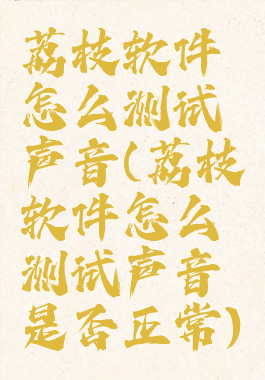 荔枝软件
怎么测试
声音(荔枝
软件怎么
测试声音
是否正常)